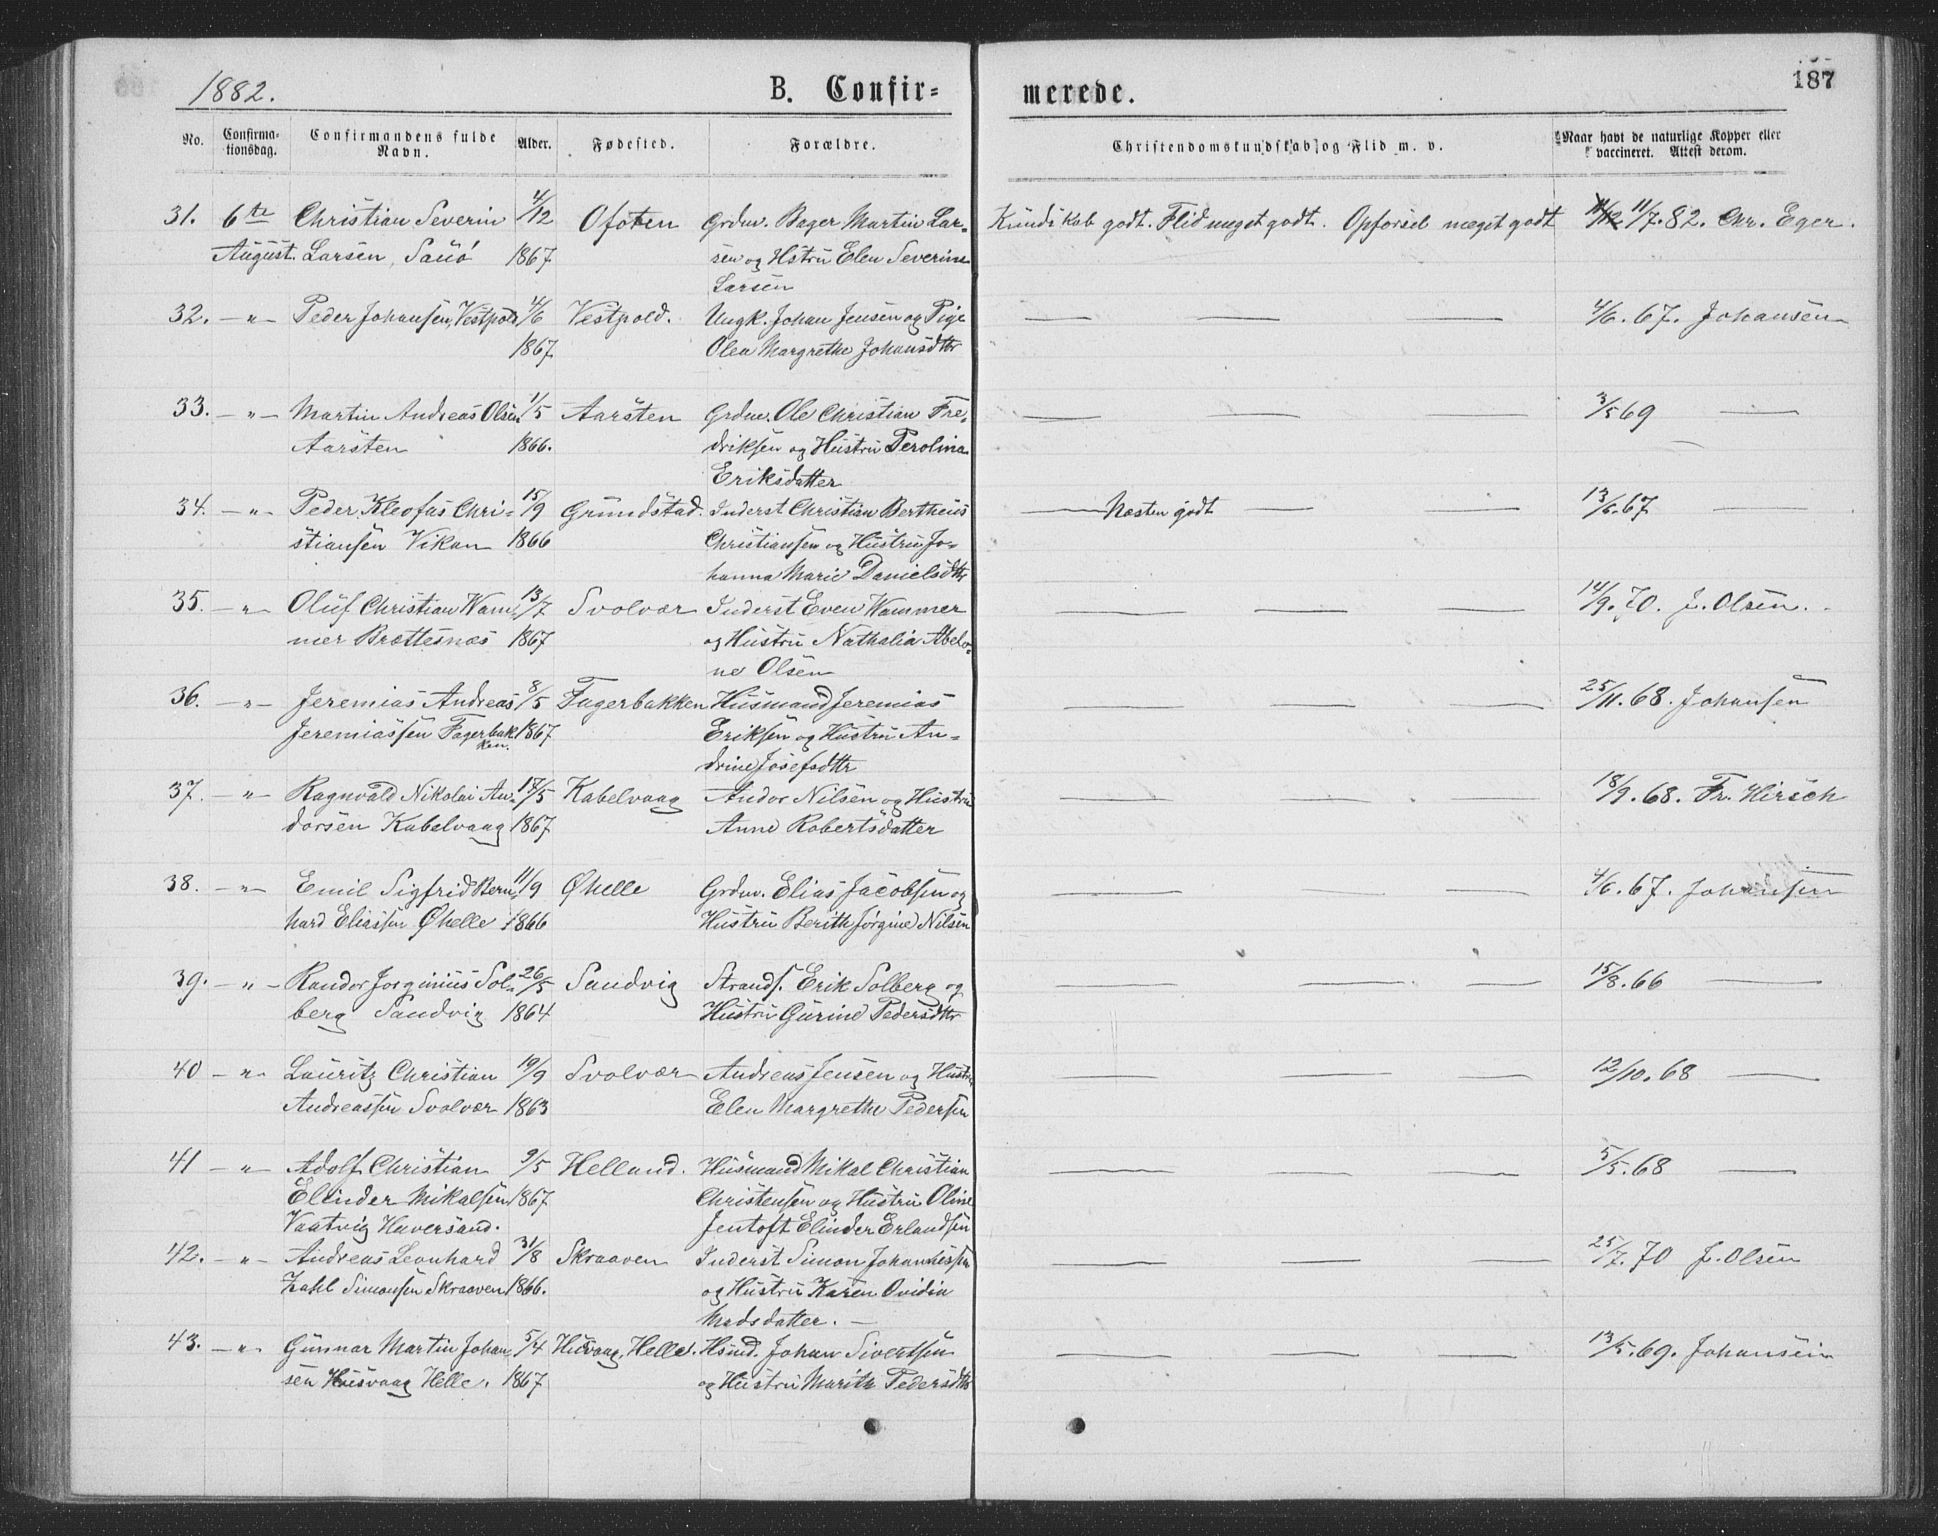 1882.
B. Confir=
merede.
187
No.
Confirma-
tionsdag.
Confirmandens fulde
Navn.
Alder.
Fødested.
Forældre.
Christendomskundskab og Flid m. v.
Naar havt de naturlige Kopper eller
vaccineret. Attest derom.
31. 6te Christian Severin 4/12 Ofoten Grdm. Bager Martin Lar- Kundskab godt. Flid meget godt. Opførsel meget godt 11/7. 82. Chr. Eger.
August. Larsen, Sauø 1867 sen og Hstru Elen Severine
Larsen
32. -"- Peder Johansen, Vestpold 4/6 Vestpold. Ungk. Johan Jensen og Pige — — — 4/6. 67. Johansen
1867. Olea Margrethe Johansdtr
33. -"- Martin Andreas Olsen 1/5 Aarsten Grdm. Ole Christian Fre- — — — 3/5 69 —
Aarsten 1866. driksen og Hustru Perolina
Eriksdatter
34. -"- Peder Kleofas Chri- 15/9 Grundstad. Inderst Christian Bertheus — Næsten godt — — 13/6. 67 —
stiansen Vikan 1866 Christiansen og Hustru Jo-
hanna Marie Danielsdtr
35. -"- Oluf Christian Wam- 13/7 Svolvær Inderst Even Wammer — — — 14/9. 70. J. Olsen.
mer Brættesnæs 1867 og Hustru Nathalia Abelo-
ne Olsen
36. -"- Jeremias Andreas 8/5 Fagerbakken Husmand Jeremias — — — 25/11. 68. Johansen
Jeremiassen Fagerbak- 1867 Eriksen og Hustru An-
ken. drine Josefsdtr
37. -"- Ragnvald Nikolai An- 17/5 Kabelvaag Andor Nilsen og Hustru — — — 18/9. 68. Fr. Hirsch
dorsen Kabelvaag 1867 Anne Robertsdatter
38. -"- Emil Sigfrid Bern- 11/9 Øhelle Grdm. Elias Jacobsen og — — — 4/6. 67. Johansen
hard Eliassen Øhelle 1866 Hustru Berith Jørgine Nilsen
39. -"- Randor Jorginius Sol- 26/5 Sandvig Strands. Erik Solberg og — — — 15/8. 66 —
berg Sandvig 1864 Hustru Gurine Pedersdtr
40 -"- Lauritz Christian 19/9 Svolvær Andreas Jensen og Hustru — — — 12/10. 68 —
Andreassen Svolvær 1863 Elen Margrethe Pedersen
41 -"- Adolf Christian 9/5 Helland. Husmand Mikal Christian — — — 5/5. 68 —
Elinder Mikalsen 1867 Christensen og Hustru Oline
Vaatvig Haversand. Jentoft Elinder Erlandsen
42. -"- Andreas Leonhard 31/8 Skraaven Inderst Simon Johannessen — — — 25/7. 70 J. Olsen
Zahl Simonsen Skraaven 1866. og Hustru Karen Ovidia
Madsdatter. —
43. -"- Gunnar Martin Johan- 5/4 Husvaag, Helle. Hsmd. Johan Sivertsen — — — 13/5. 69. Johansen
sen Husvaag Helle. 1867 og Hustru Marith Pedersdtr